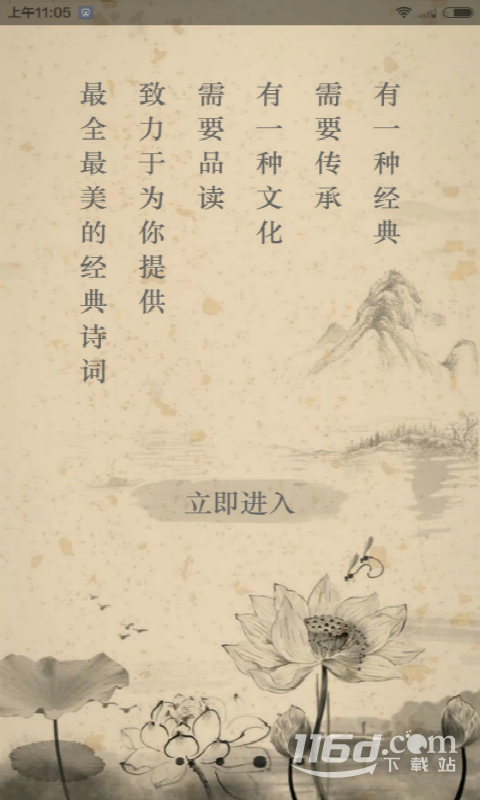 上午11:05
有一种经典
需要传承
有一种文化
需要品读
致力于为你提供
最全最美的经典诗词
立即进入
116d.com
下载站